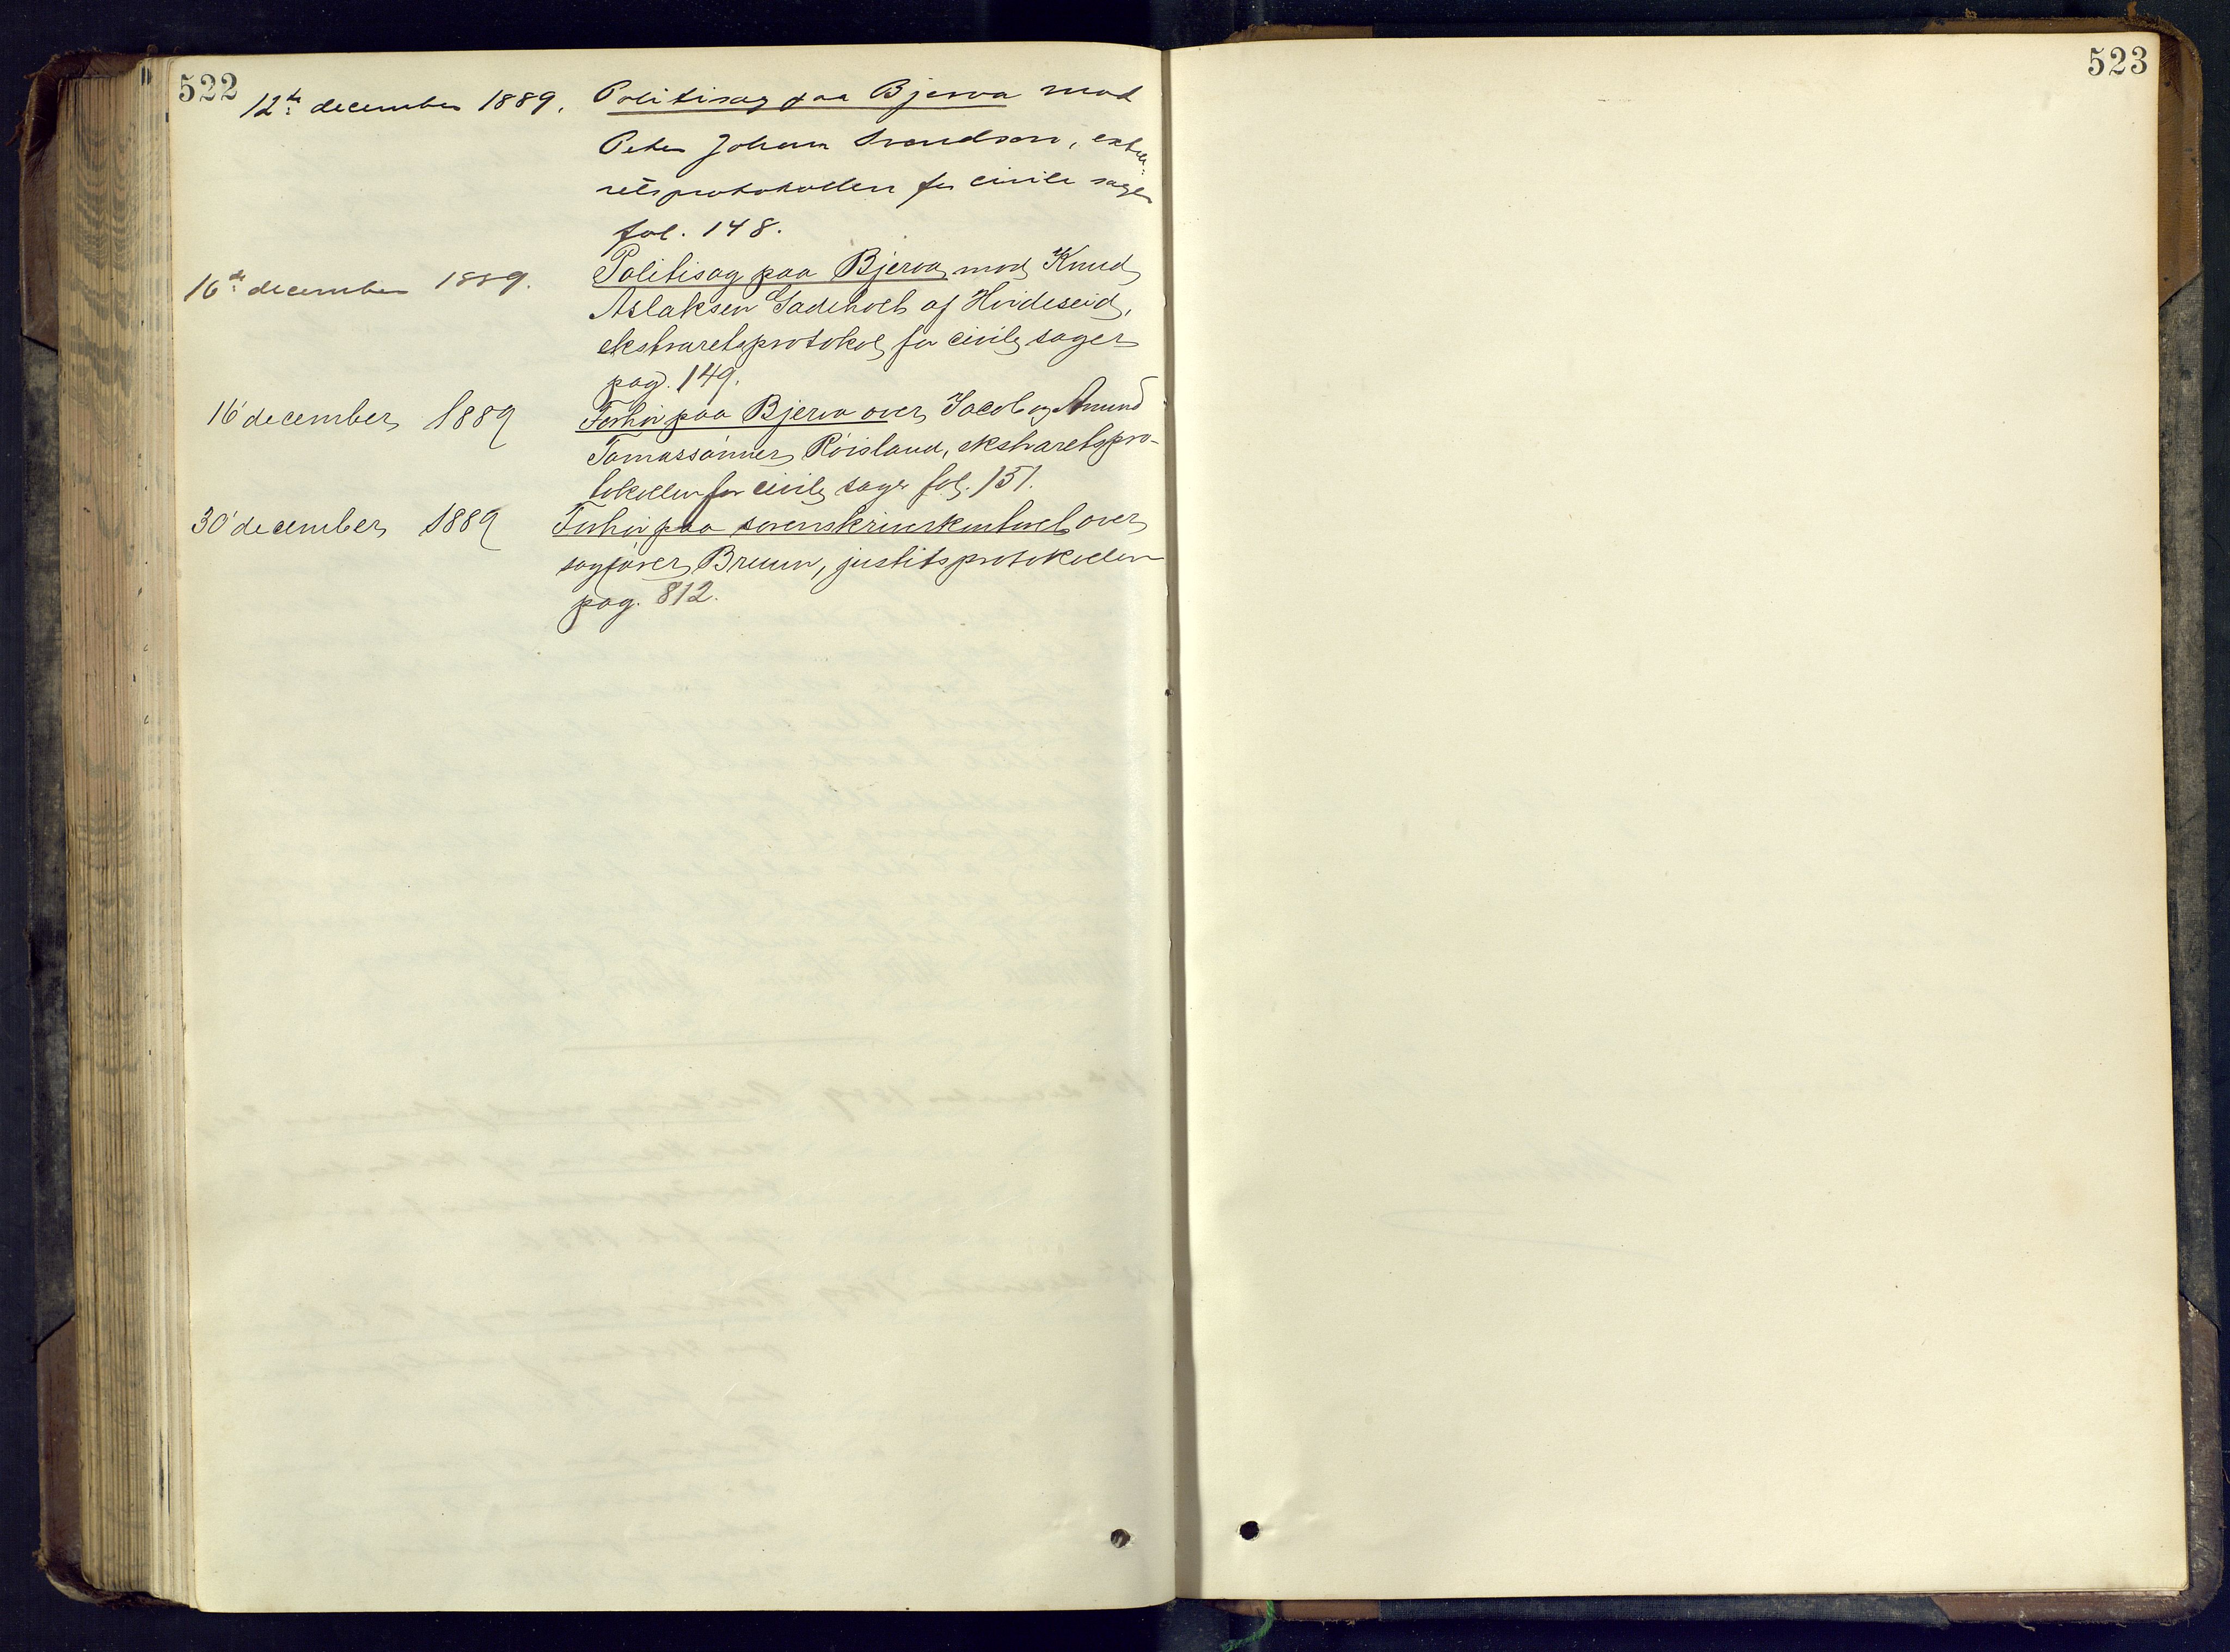 522
12te december 1889. Politisag paa Bjerva mod
Peter Johan Svendsen, extra-
retsprotokollen for civile sager
fol. 148.
16de december 1889. Politisag paa Bjerva mod Knud
Aslaksen Gadeholt af Hvideseid,
ekstraretsprotokol for civile sager
pag. 149.
16 december 1889 Forhør paa Bjerva over Jacob og Amund
Tomassønner Röisland, ekstraretspro-
tokollen for civile sager fol. 151.
30 december 1889 Forhør paa sorenskriverkontoret over
sagfører Bruun, justitsprotokollen
pag. 812.
523